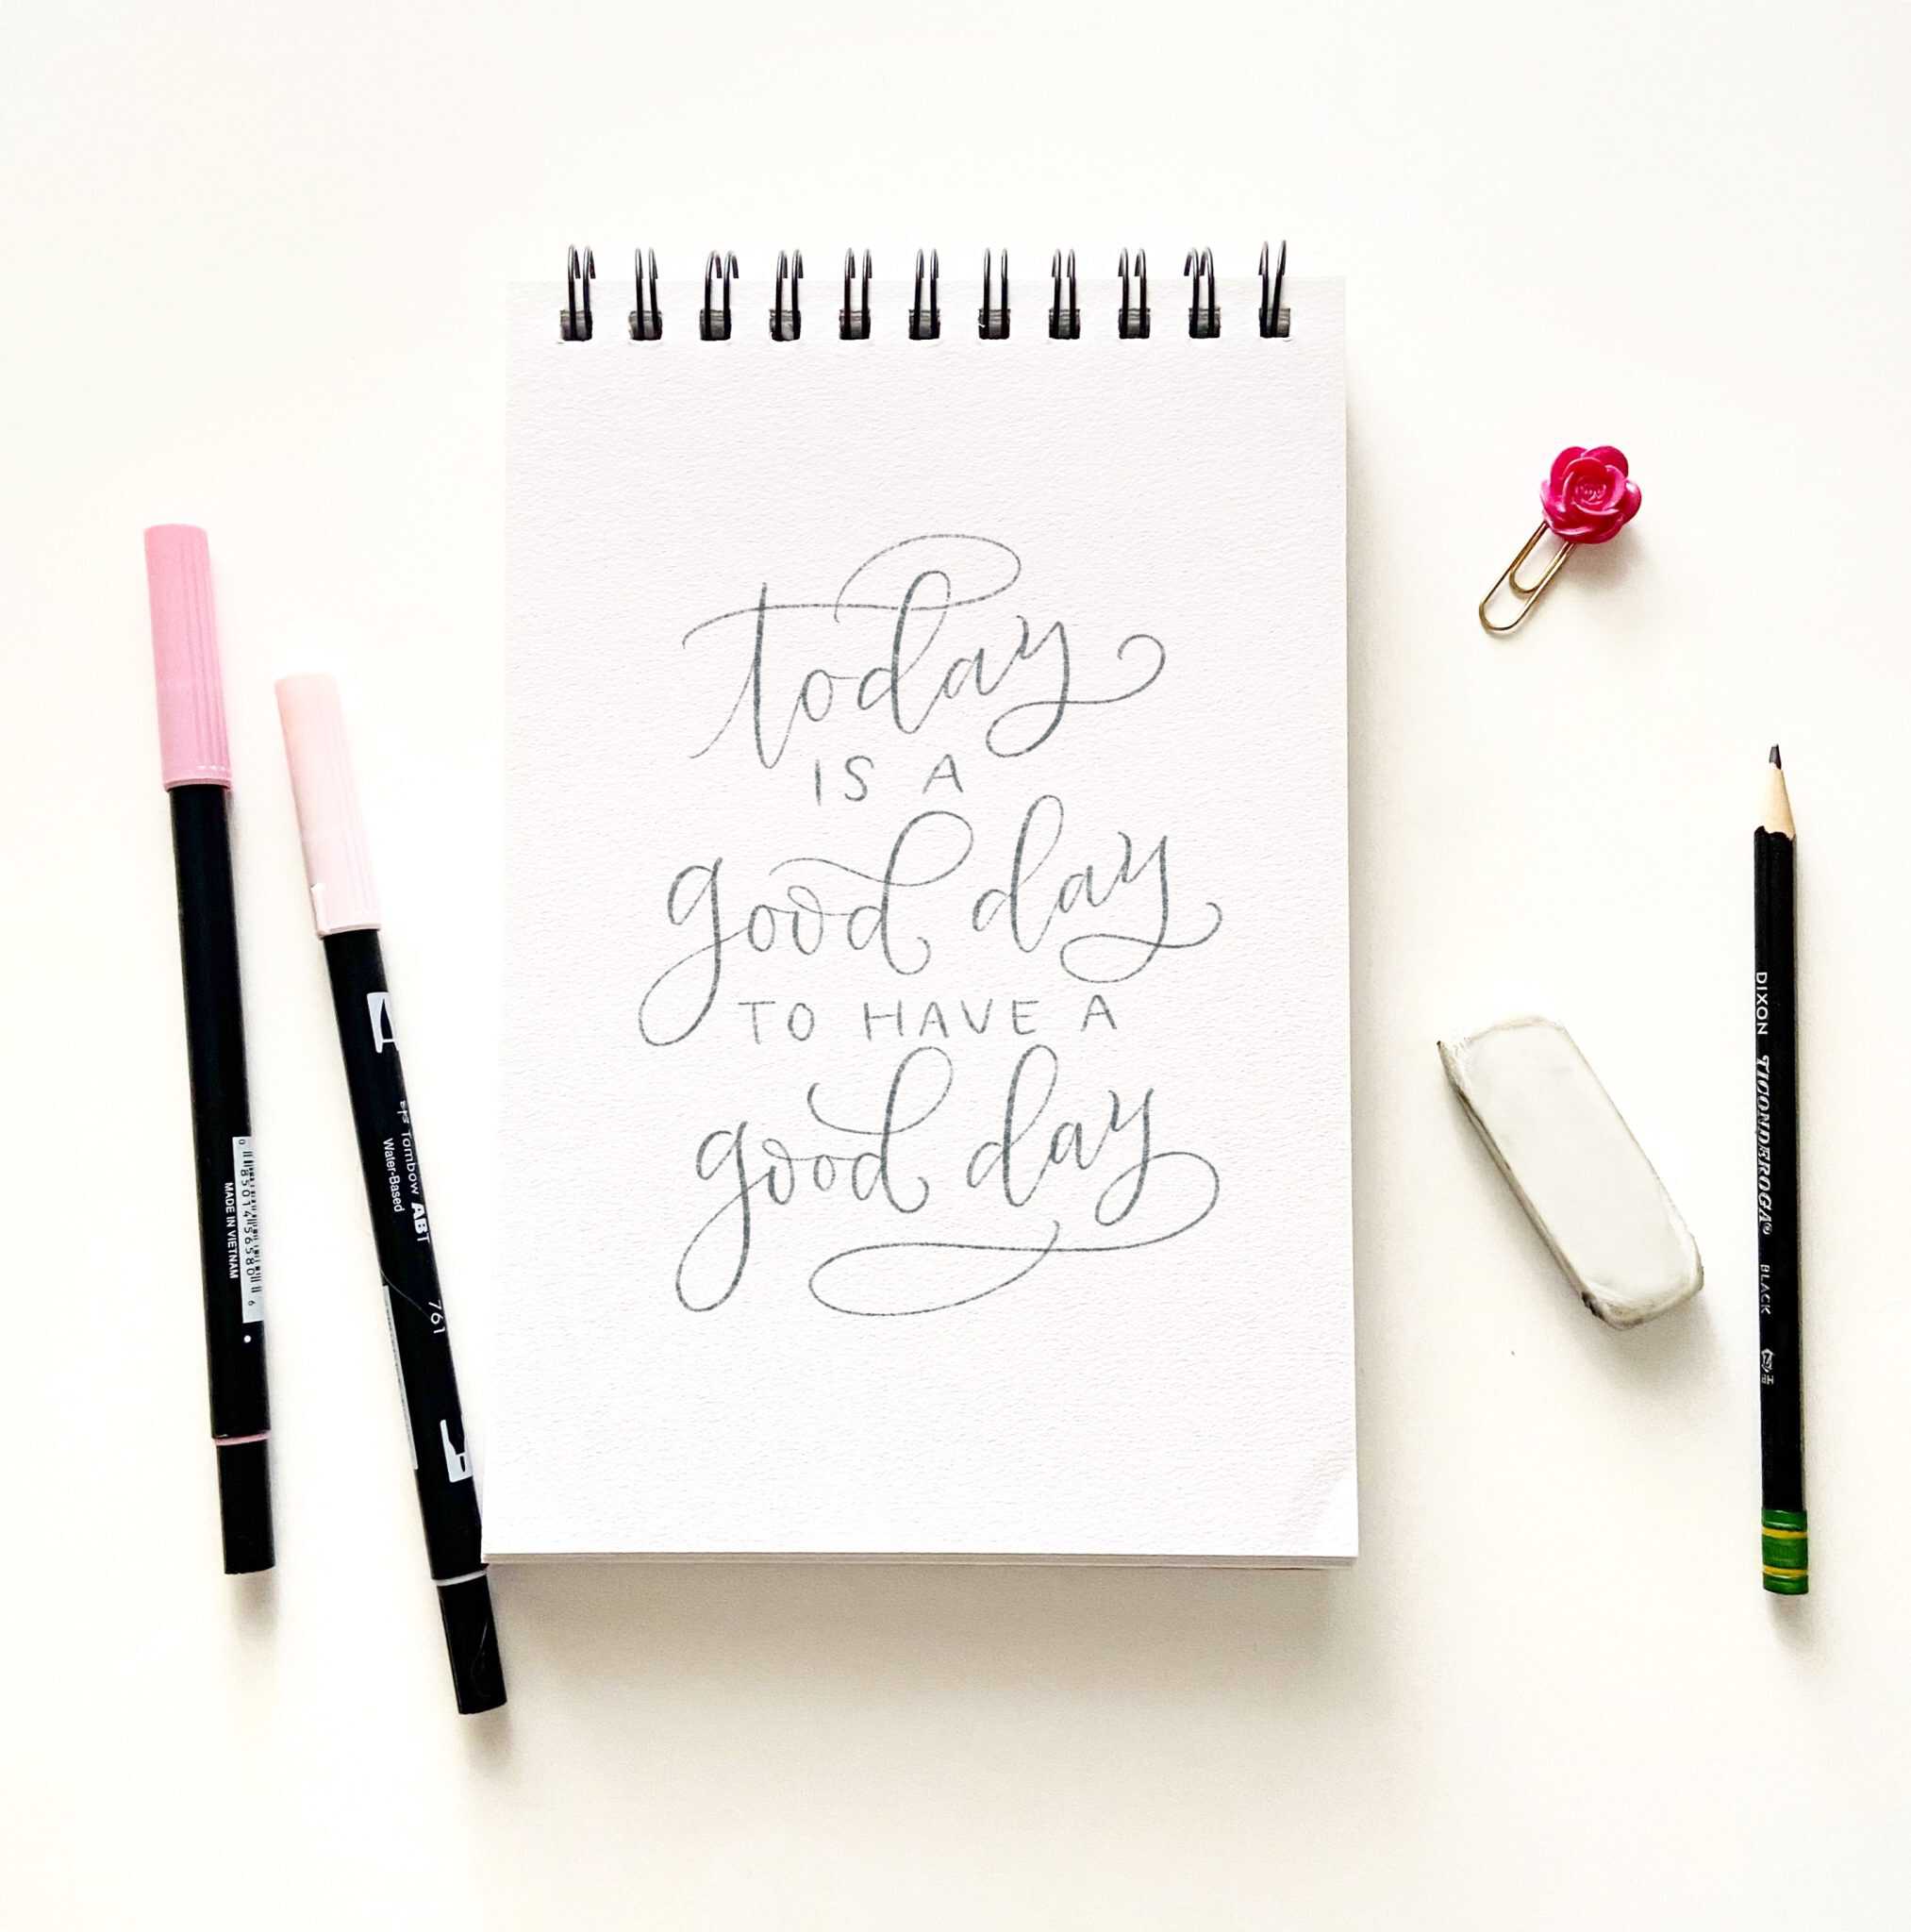 today
IS A
good day
TO HAVE A
good day
MADE IN VIETNAM
Tombow ABT
Water-Based
761
DIXON TICONDEROGA® BLACK